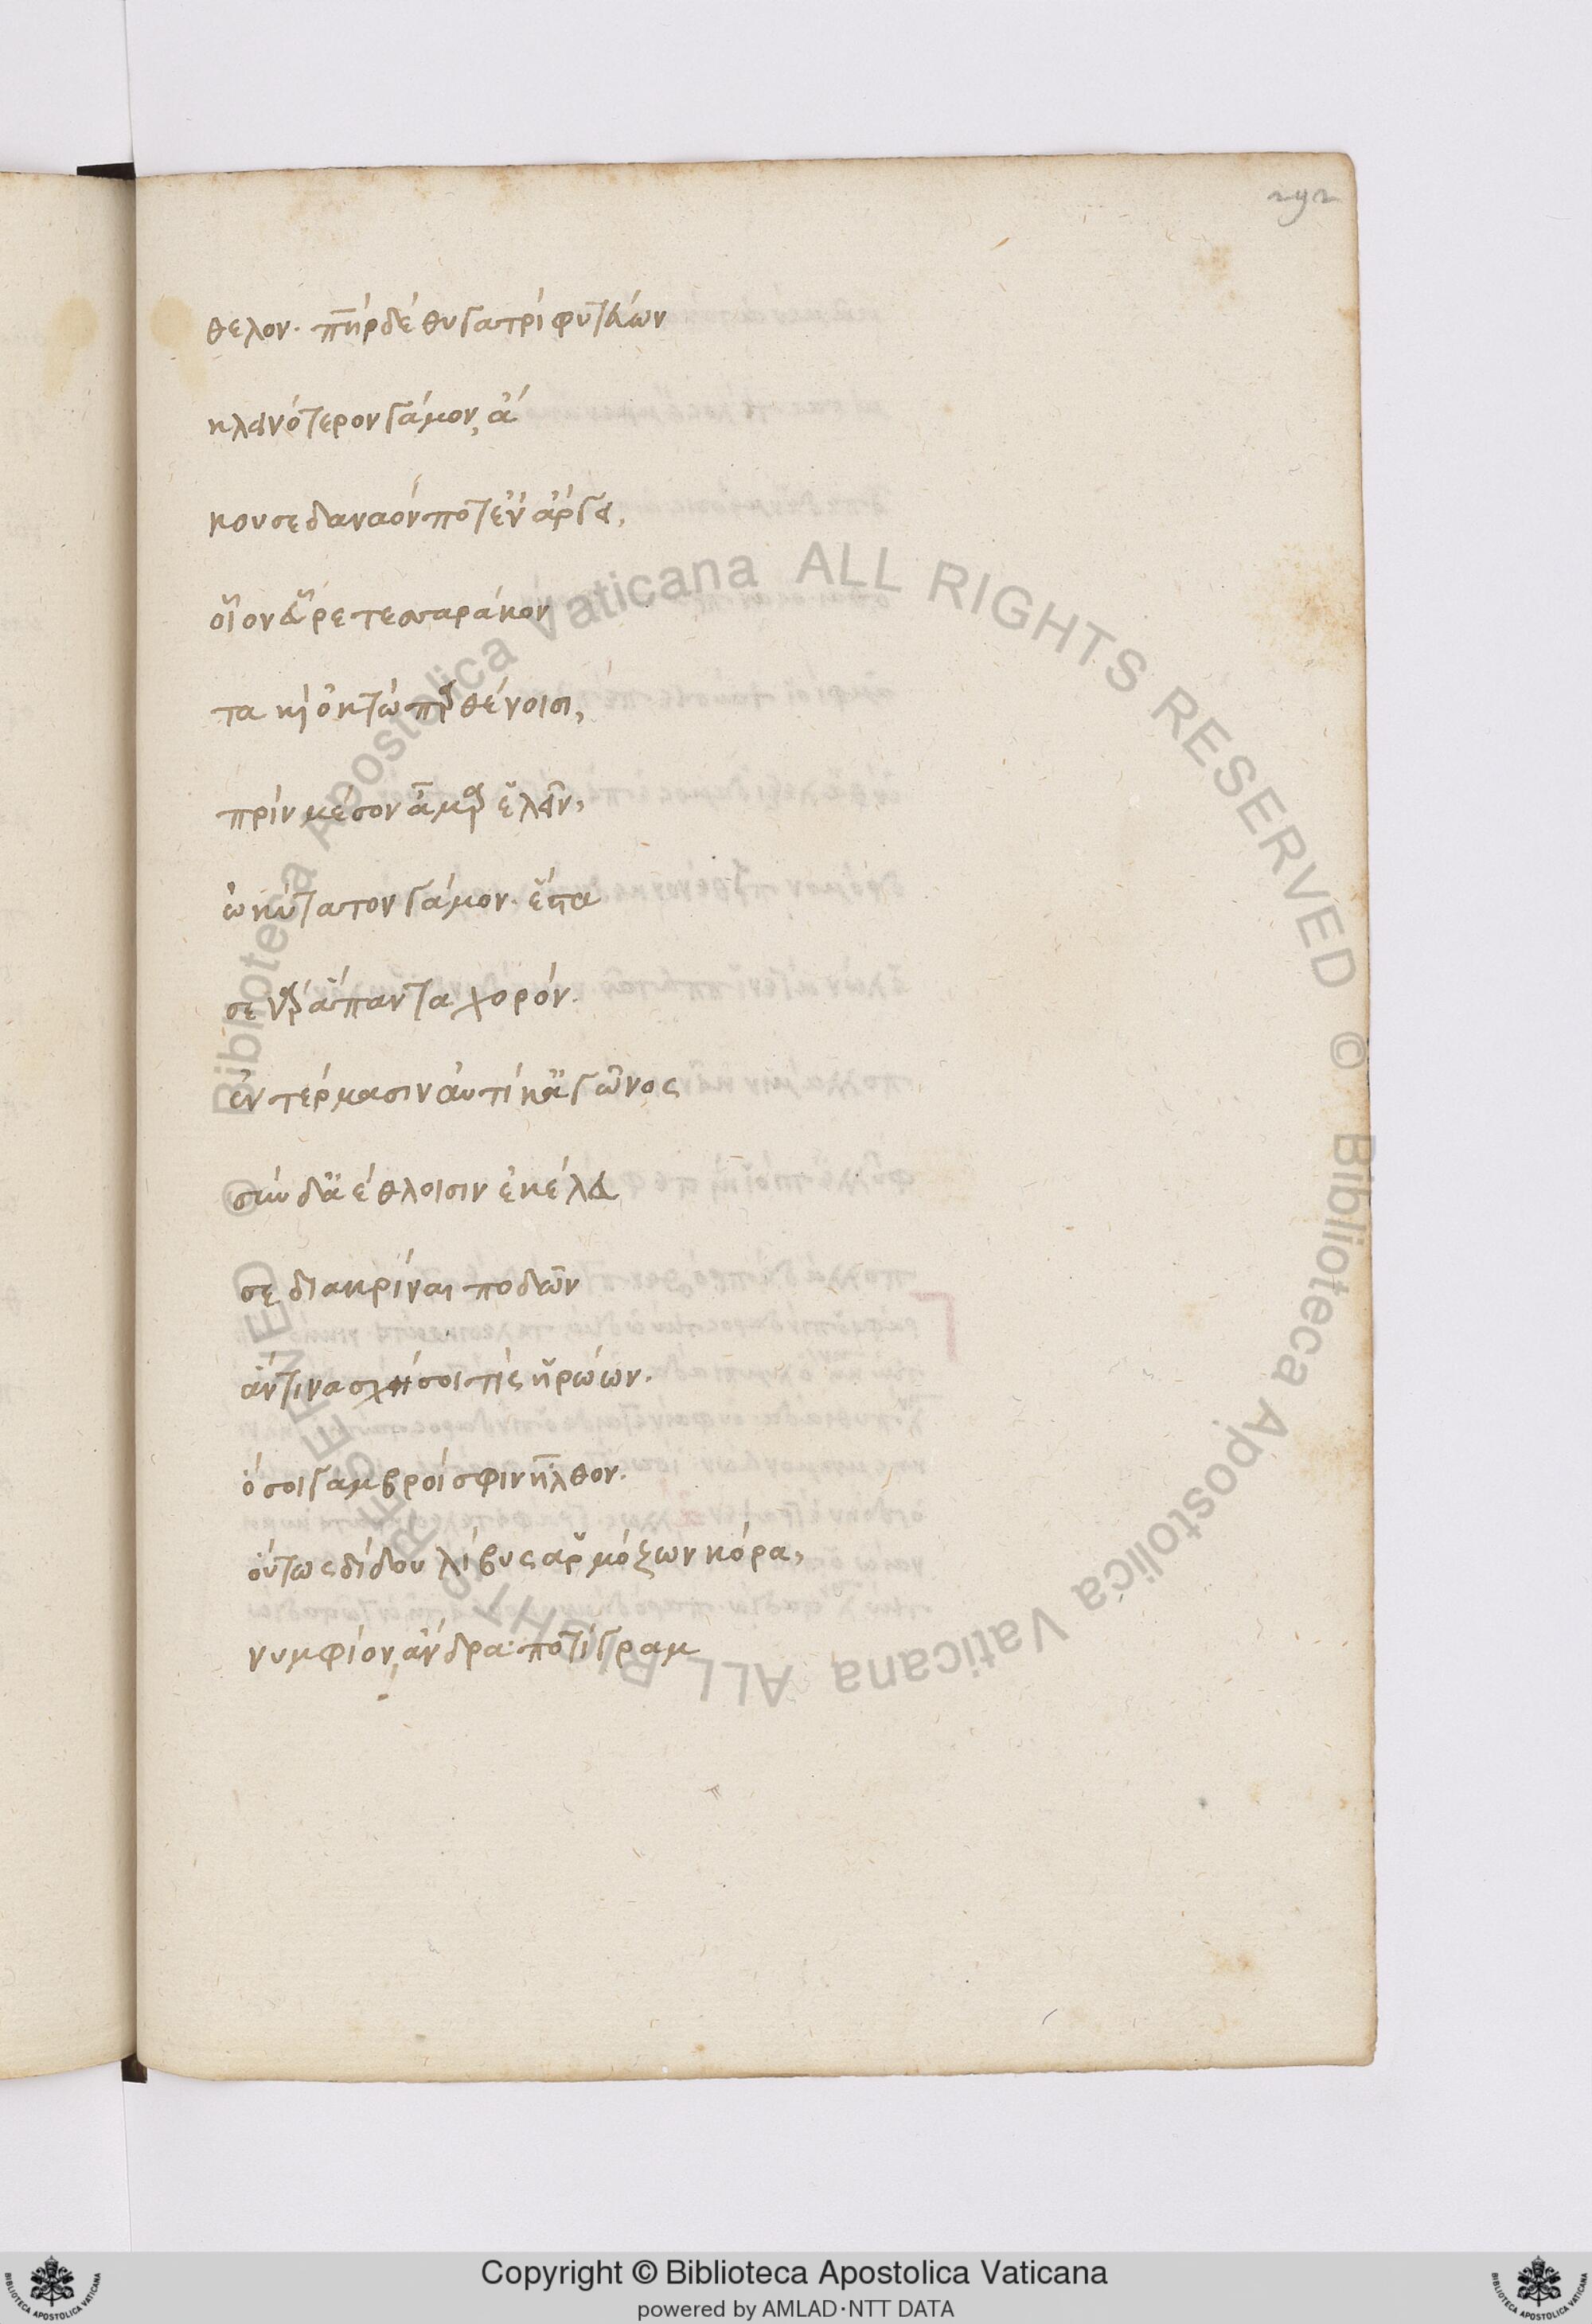 292
θελον. πη̅ρ δὲ θυγατρὶ φυτεύων
κλεινότερον γάμον, ἄ
κουσε δαναόν ποτ' ἐν ἄργει,
οἷον εὗρε τεσσαράκον
τα κὶ ὀκτὼ πρθένοισι,
πρὶν μέσον ἆμαρ ἑλεῖν,
ὠκύτατον γάμον. ἔστα
σε γὰρ ἅπαντα χορόν.
ἐν τέρμασιν αὐτίκ' ἀγῶνος
σὺν δ' ἀέθλοισιν ἐκέλευ
σε διακρῖναι ποδῶν
ἅντινα σχήσοι τὶς ἡρώων.
ὅσοι γαμβροί σφιν ἦλθον.
οὕτως δίδου λίβυς ἁρμόζων κόρα,
νυμφίον ἄνδρα· ποτὶ γραμ
© Biblioteca Apostolica Vaticana ALL RIGHTS RESERVED © Biblioteca Apostolica Vaticana ALL RIGHTS RESERVED
Copyright © Biblioteca Apostolica Vaticana
powered by AMLAD·NTT DATA
BIBLIOTECA APOSTOLICA VATICANA
BIBLIOTECA APOSTOLICA VATICANA